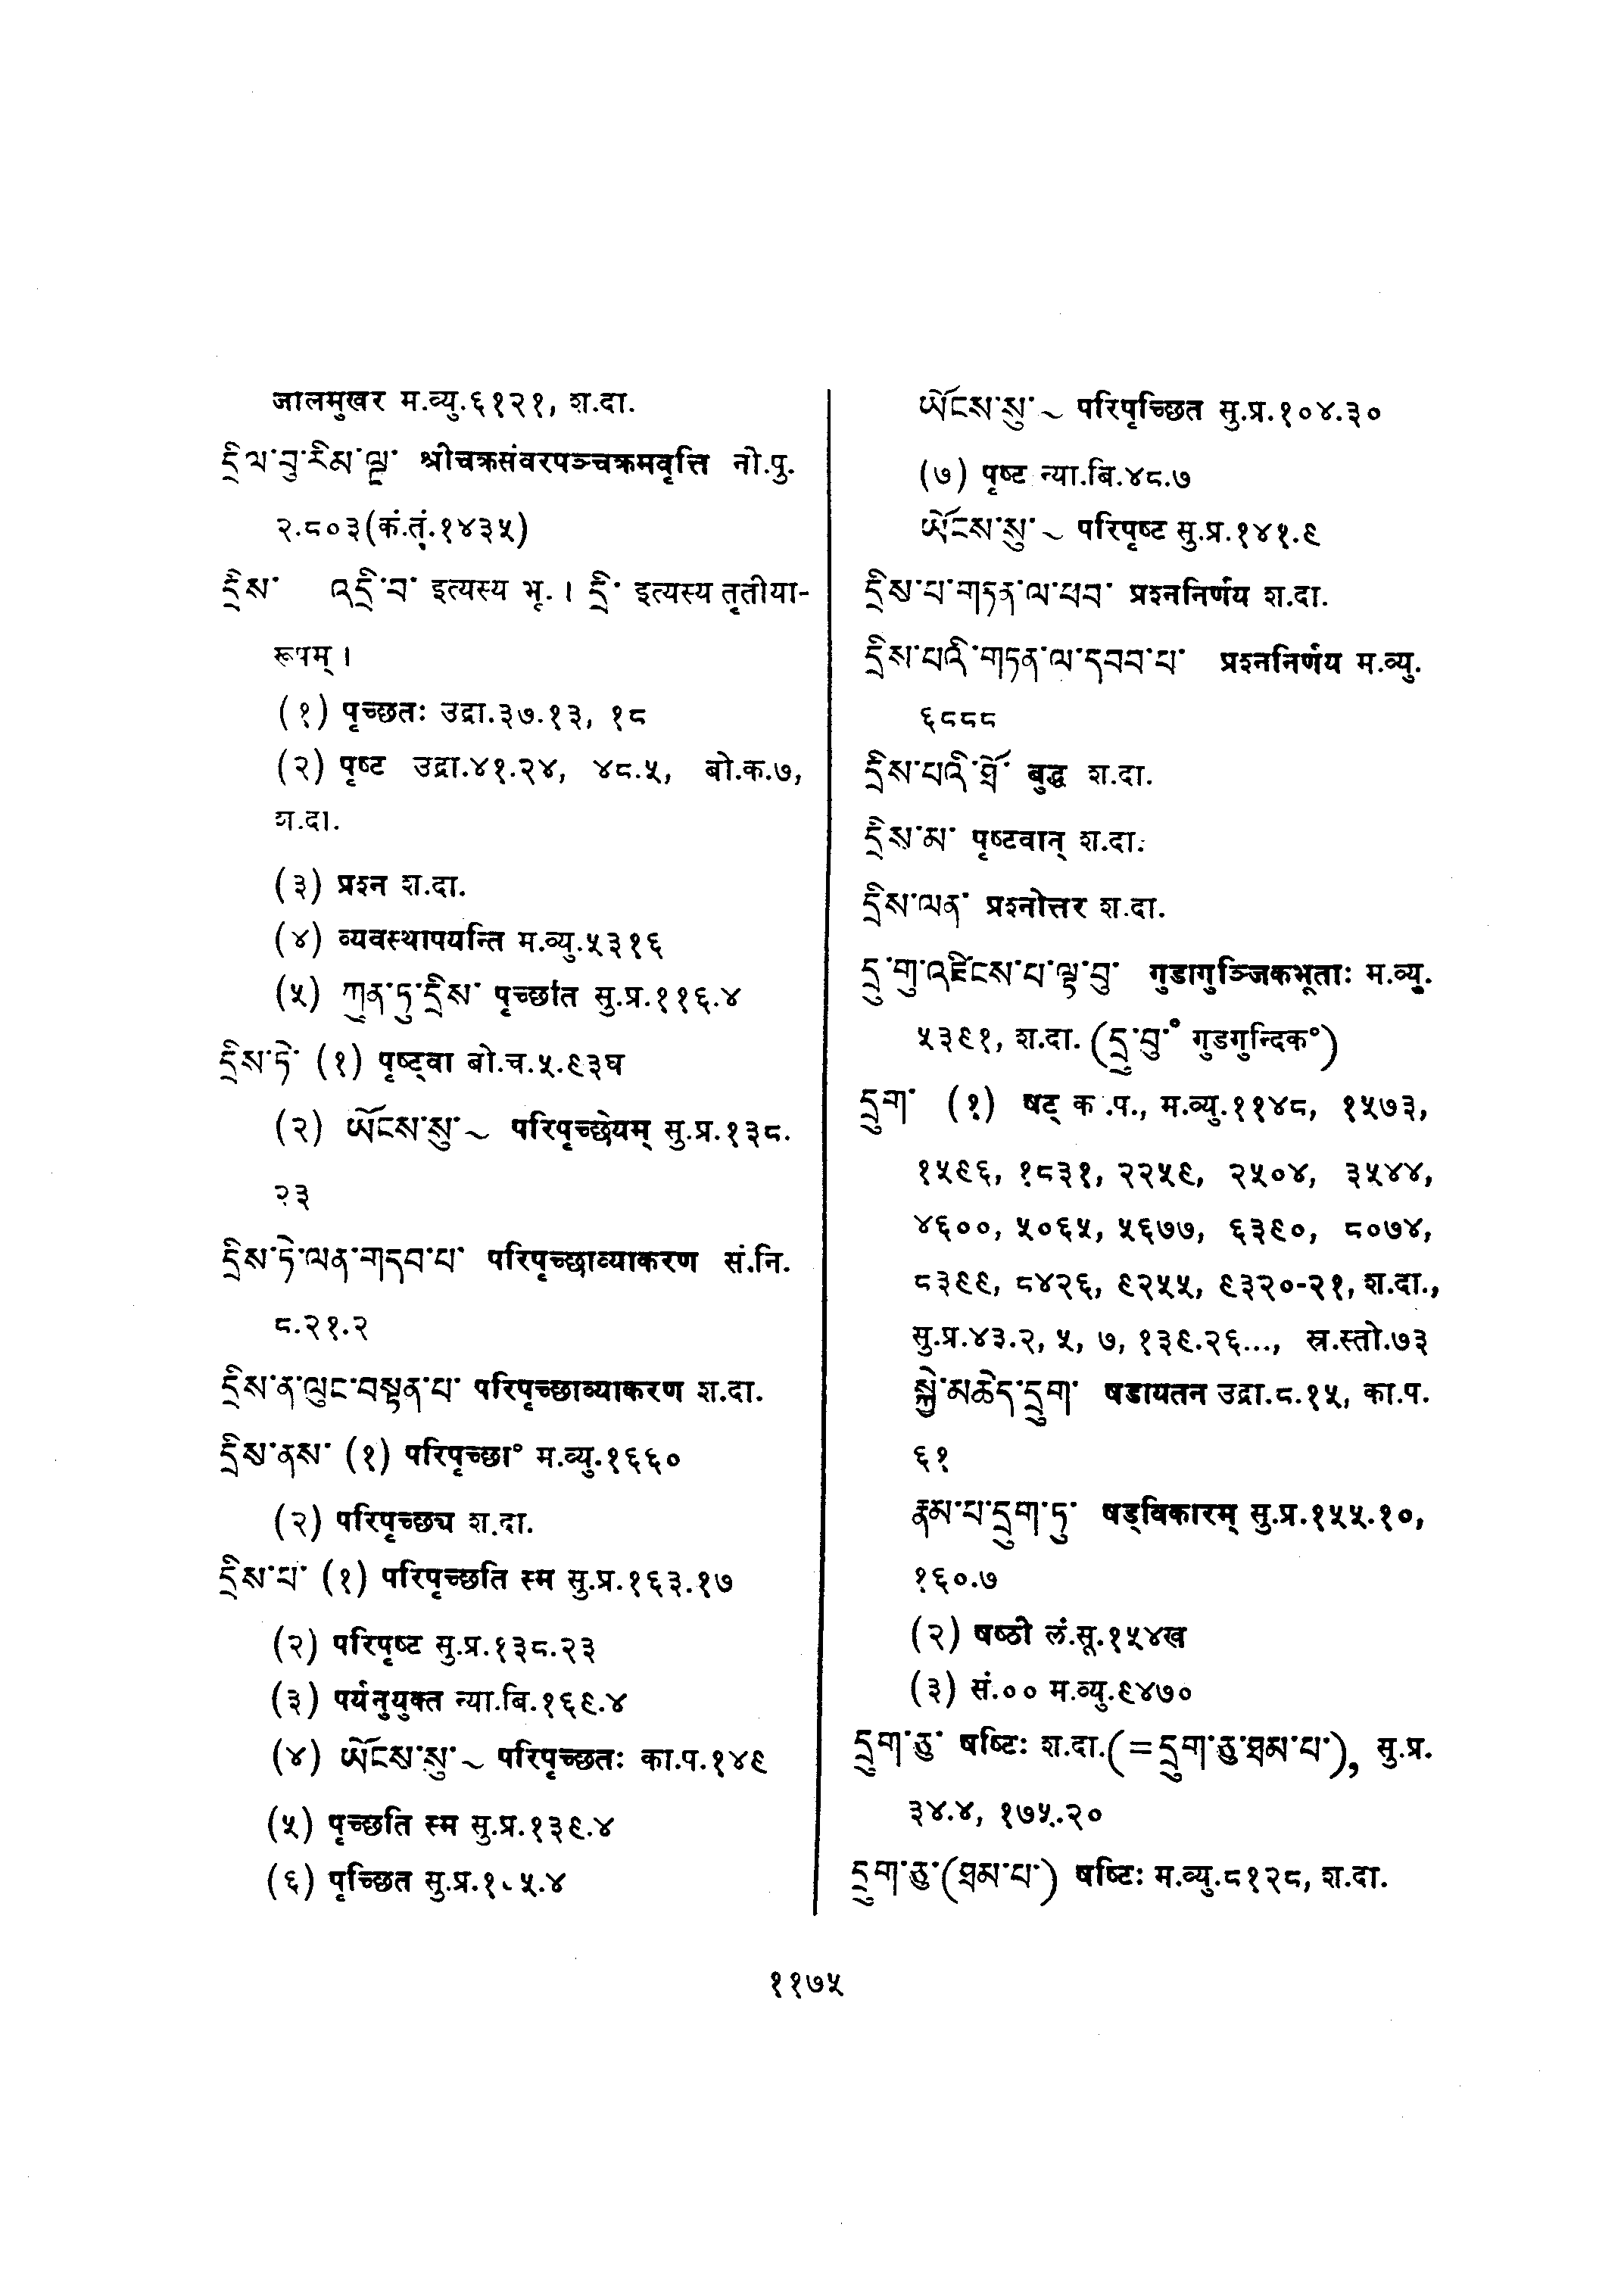 जालमुखर म.व्यु.६१२१, श.दा.
དྲིལ་བུ་རིམ་ལྔ་ श्रीचक्रसंवरपञ्चक्रमवृत्ति नो.पु.
२.८०३(कं.तं.१४३५)
དྲིས་ འདྲི་བ་ इत्यस्य भू. । དྲི་ इत्यस्य तृतीया-
रूपम् ।
(१) पृच्छतः उद्रा.३७.१३, १८
(२) पृष्ट उद्रा.४१.२४, ४८.५, बो.क.७,
श.दा.
(३) प्रश्न श.दा.
(४) व्यवस्थापयन्ति म.व्यु.५३१६
(५) ཀུན་ཏུ་དྲིས་ पृच्छति सु.प्र.११६.४
དྲིས་ཏེ་ (१) पृष्ट्वा बो.च.५.९३घ
(२) ཡོངས་སུ་ ~ परिपृच्छेयम् सु.प्र.१३८.
२३
དྲིས་ཏེ་ལན་གདབ་པ་ परिपृच्छाव्याकरण सं.नि.
८.२१.२
དྲིས་ན་ལུང་བསྟན་པ་ परिपृच्छाव्याकरण श.दा.
དྲིས་ནས་ (१) परिपृच्छा° म.व्यु.१६६०
(२) परिपृच्छ्य श.दा.
དྲིས་པ་ (१) परिपृच्छति स्म सु.प्र.१६३.१७
(२) परिपृष्ट सु.प्र.१३८.२३
(३) पर्यनुयुक्त न्या.बि.१६९.४
(४) ཡོངས་སུ་ ~ परिपृच्छतः का.प.१४९
(५) पृच्छति स्म सु.प्र.१३९.४
(६) पृच्छित सु.प्र.
ཡོངས་སུ་ ~ परिपृच्छित सु.प्र.१०४.३०
(७) पृष्ट न्या.बि.४८.७
ཡོངས་སུ་ ~ परिपृष्ट सु.प्र.१४१.९
དྲིས་པ་གཏན་ལ་ཕབ་ प्रश्ननिर्णय श.दा.
དྲིས་པའི་གཏན་ལ་དབབ་པ་ प्रश्ननिर्णय म.व्यु.
६८८८
དྲིས་པའི་ཐྲོ་ बुद्ध श.दा.
དྲིས་མ་ पृष्टवान् श.दा.
དྲིས་ལན་ प्रश्नोत्तर श.दा.
དྲུ་གུ་འཛིངས་པ་ལྟ་བུ་ गुडागुञ्जिकभूताः म.व्यु.
५३९१, श.दा. (དྲུ་བུ་° गुडगुन्दिक°)
དྲུག་ (१) षट् क .प., म.व्यु.११४८, १५७३,
१५९६, १८३१, २२५९, २५०४, ३५४४,
४६००, ५०६५, ५६७७, ६३९०, ८०७४,
८३९९, ८४२६, ९२५५, ९३२०-२१, श.दा.,
सु.प्र.४३.२, ५, ७, १३९.२६..., स्र.स्तो.७३
སྐྱེ་མཆེད་དྲུག་ षडायतन उद्रा.८.१५, का.प.
६१
རྣམ་པ་དྲུག་ཏུ་ षड्विकारम् सु.प्र.१५५.१०,
१६०.७
(२) षष्ठी लं.सू.१५४ख
(३) सं.०० म.व्यु.९४७०
དྲུག་ཅུ་ षष्टिः श.दा.(=དྲུག་ཅུ་ཐམ་པ་), सु.प्र.
३४.४, १७५.२०
དྲུག་ཅུ་(ཐམ་པ་) षष्टिः म.व्यु.८१२८, श.दा.
११७५